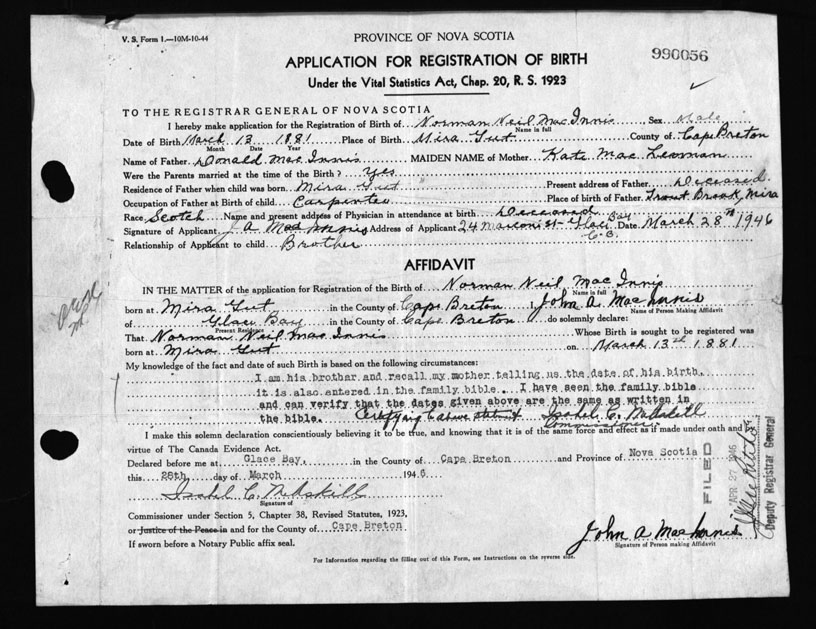 V. S. Form 1.—10M-10-44
PROVINCE OF NOVA SCOTIA
APPLICATION FOR REGISTRATION OF BIRTH
990056
Under the Vital Statistics Act, Chap. 20, R. S. 1923
TO THE REGISTRAR GENERAL OF NOVA SCOTIA
I hereby make application for the Registration of Birth of Norman Neil MacInnis Sex Male
Name in full
Date of Birth March 13 1881 Place of Birth Mira Gut County of Cape Breton
Month Date Year
Name of Father Donald MacInnis MAIDEN NAME of Mother Kate Mac Lennan
Were the Parents married at the time of the Birth? Yes
Residence of Father when child was born Mira Gut Present address of Father Deceased
Occupation of Father at Birth of child Carpenter Place of birth of Father Trout Brook, Mira
Race Scotch Name and present address of Physician in attendance at birth Deceased
Signature of Applicant J. A. MacInnis Address of Applicant 24 Marconi St. Glace Bay C.B. Date March 28th 1946
Relationship of Applicant to child Brother
AFFIDAVIT
IN THE MATTER of the application for Registration of the Birth of Norman Neil MacInnis
Name in full
born at Mira Gut in the County of Cape Breton, I, John A. MacInnis
Name of Person Making Affidavit
of Glace Bay in the County of Cape Breton do solemnly declare:
Present Residence
That Norman Neil MacInnis Whose Birth is sought to be registered was
born at Mira Gut on March 13th 1881
My knowledge of the fact and date of such Birth is based on the following circumstances:
I am his brother and recall my mother telling us the date of his birth.
it is also entered in the family bible. I have seen the family bible
and can verify that the dates given above are the same as written in
the bible. Certifying above statement Isabel C. McAskill
Commissioner
I make this solemn declaration conscientiously believing it to be true, and knowing that it is of the same force and effect as if made under oath and by
virtue of The Canada Evidence Act.
Declared before me at Glace Bay, in the County of Cape Breton and Province of Nova Scotia
this 28th day of March 1946
Isabel C. McAskill
Signature of
Commissioner under Section 5, Chapter 38, Revised Statutes, 1923,
or Justice of the Peace in and for the County of Cape Breton
If sworn before a Notary Public affix seal.
John A MacInnis
Signature of Person making Affidavit
For Information regarding the filling out of this Form, see Instructions on the reverse side.
FILED
APR 27 1946
Deputy Registrar General